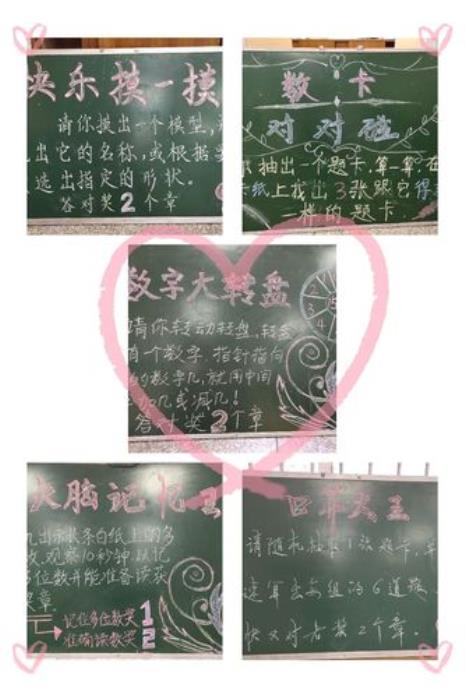 快乐摸一摸
请你摸出一个模型,
出它的名称,或根据
选出指定的形状。
答对奖2个章
数卡
对对碰
抽出一个题卡,算一算,在
卡纸上找出3张跟它得
一样的题卡
数字大转盘
2
3
4
5
请你转动转盘,转
有一个数字,指针指向
的数字几,就用中间
加几或减几!
答对奖2个章
大脑记忆王
出示长条白纸上的多
数,观察10秒钟,从记
多位数并能准备读获
奖章
记住多位数奖1
准确读数奖2
口算大王
请随机抽取1张题卡,
速算出每组的6道题
快又对者奖2个章。